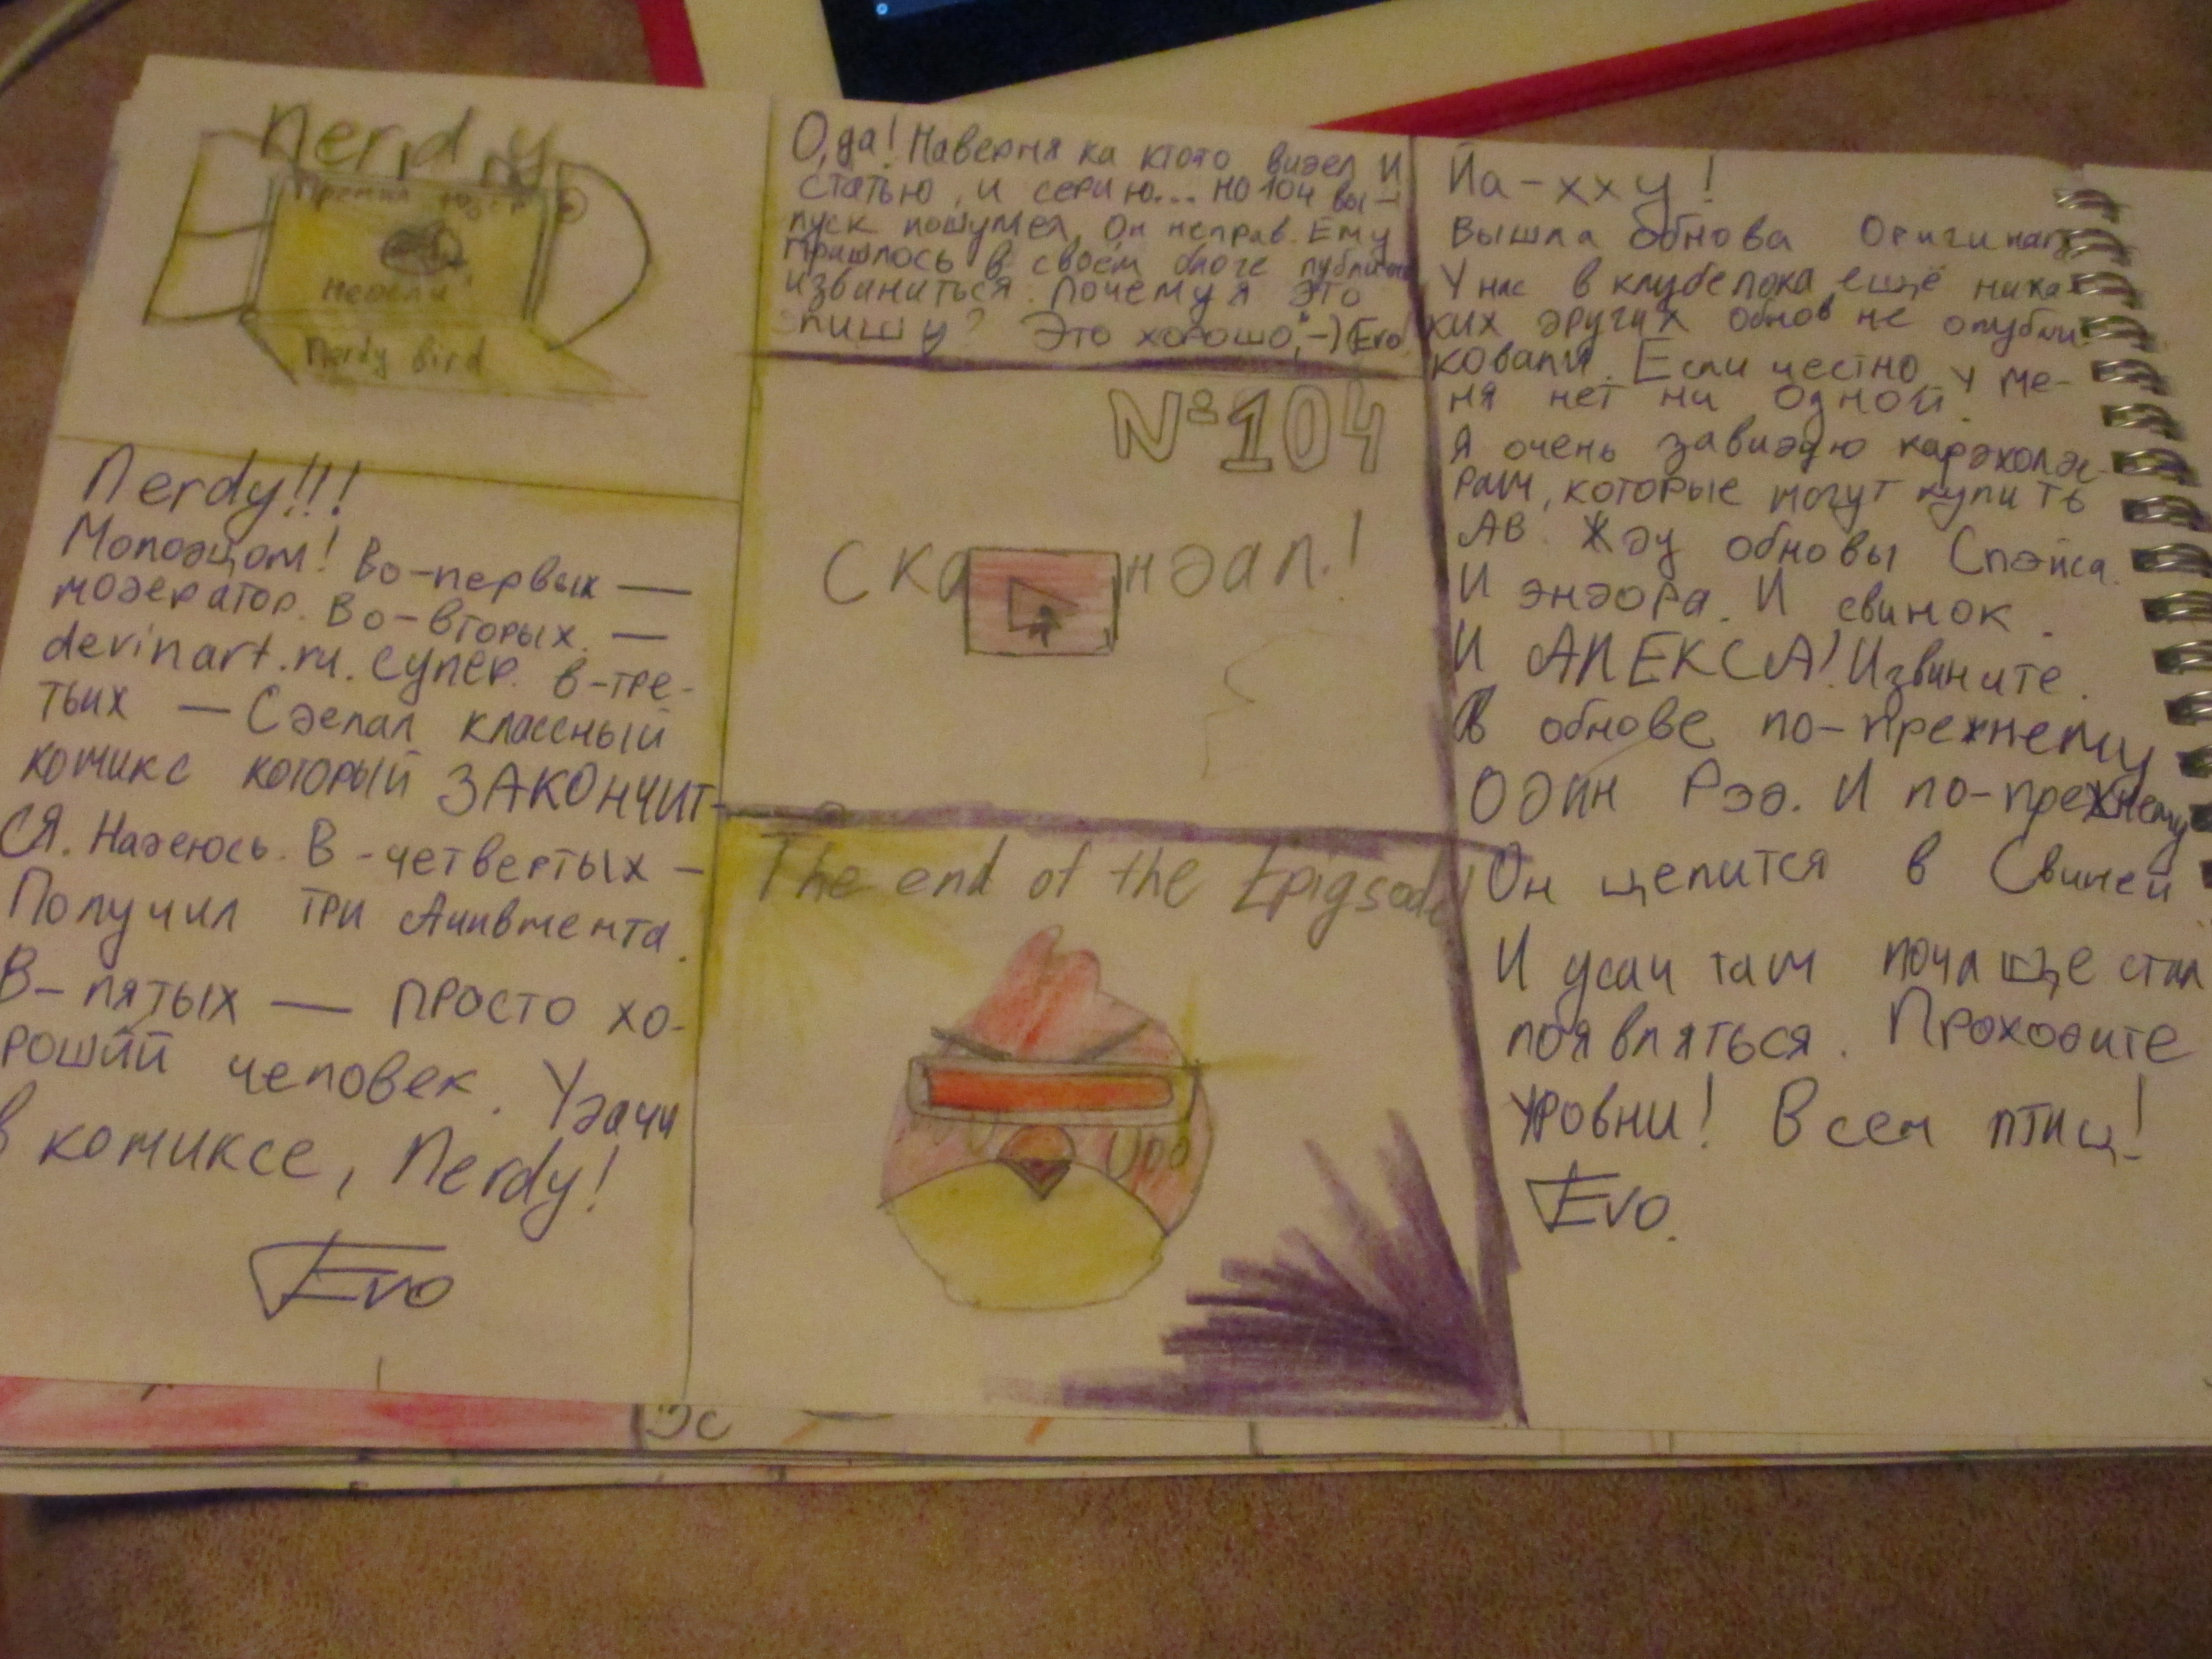 Nerdy
Премия юзер
недели
Nerdy bird
Nerdy!!!
Молодцом! Во-первых —
модератор. Во-вторых. —
devinart.ru. супер. в-тре-
тьих — Сделал классный
комикс который ЗАКОНЧИТ-
СЯ. Надеюсь. В-четвертых —
Получил три Ачивмента.
В-пятых — просто хо-
роший человек. Удачи
в комиксе, Nerdy!
Evo
О, да! Наверня ка ктото видел и
статью, и серию... но 104 вы-
пуск пошумел. Он неправ. Ему
пришлось в своём блоге публично
извиниться. Почему я это
пишу? Это хорошо ;-) Evo
№104
Скандал!
The end of the Epigsode!
Йа-хху!
Вышла обнова
У нас в клубе пока ещё ника
ких других обнов не опубли-
ковали. Если честно у ме-
ня нет ни одной.
Я очень завидую кардхолде-
рам, которые могут купить
АВ. Жду обновы Спэйса.
И эндора. И свинок.
И АЛЕКСА! Извините.
В обнове по-прежнему
один Рэд. И по-прежнему
Он целится в Свиней
И усач там почаще стал
появляться. Проходите
уровни! Всем птиц!
Evo.
Эс